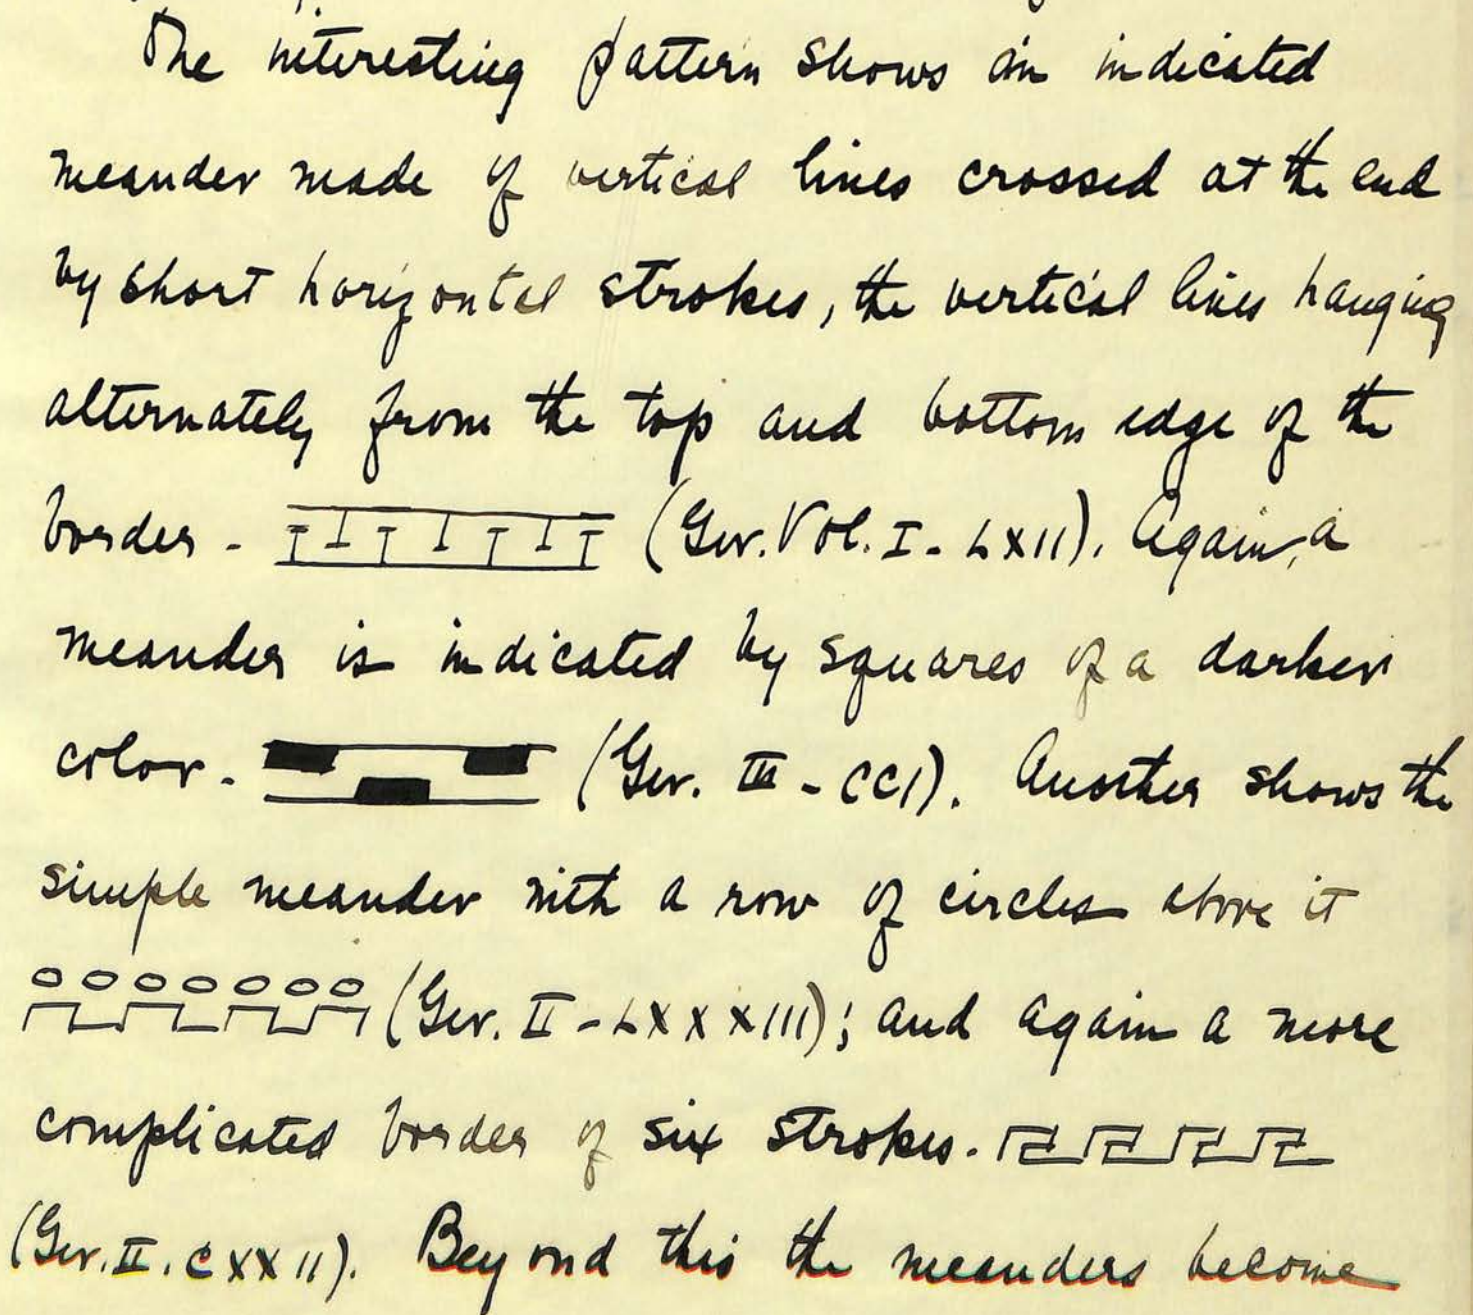 The interesting pattern shows an indicated
meander made of vertical lines crossed at the end
by short horizontal strokes, the vertical lines hanging
alternately from the top and bottom edge of the
border - (Ger. Vol. I - LXII). Again, a
meander is indicated by squares of a darker
color - (Ger. III - CCI). Another shows the
simple meander with a row of circles above it
(Ger. II - LXXXIII); and again a more
complicated border of six strokes.
(Ger. II. CXXII). Beyond this the meanders become